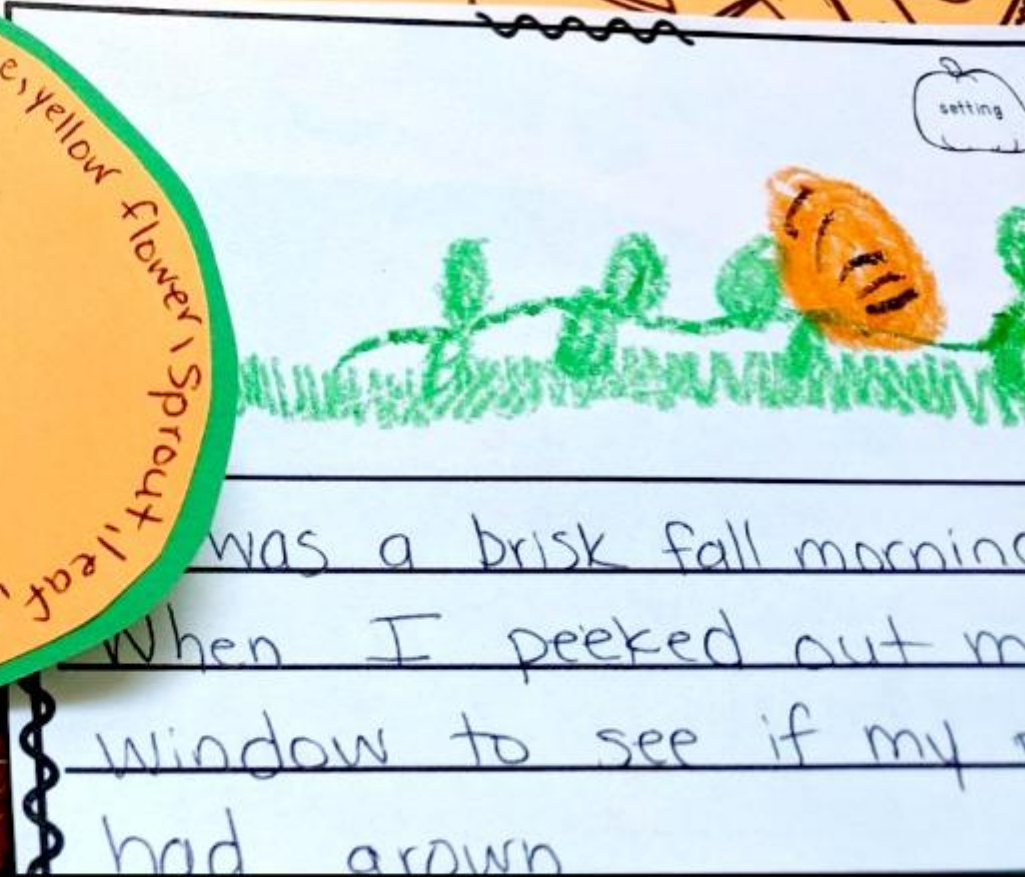 yellow flower, Sprout, leaf,
setting
was a brisk fall morning
When I peeked out
window to see if my
had grown